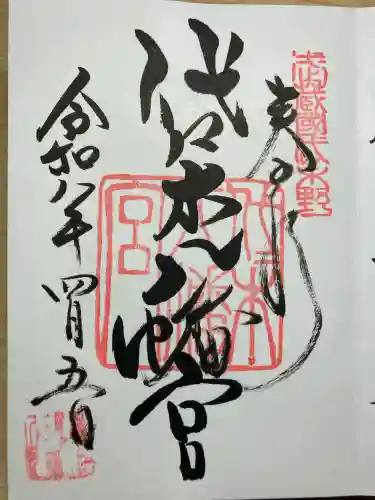 奉拝
代々木八幡宮
令和八年四月五日
武蔵國代々木野
代々木八幡宮